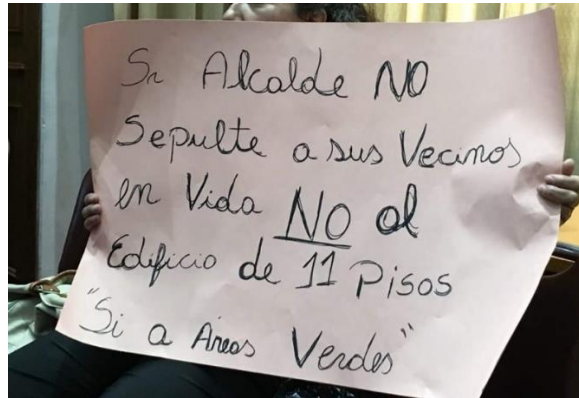 Sr Alcalde NO
Sepulte a sus Vecinos
en Vida NO al
Edificio de 11 Pisos
"Si a Áreas Verdes"